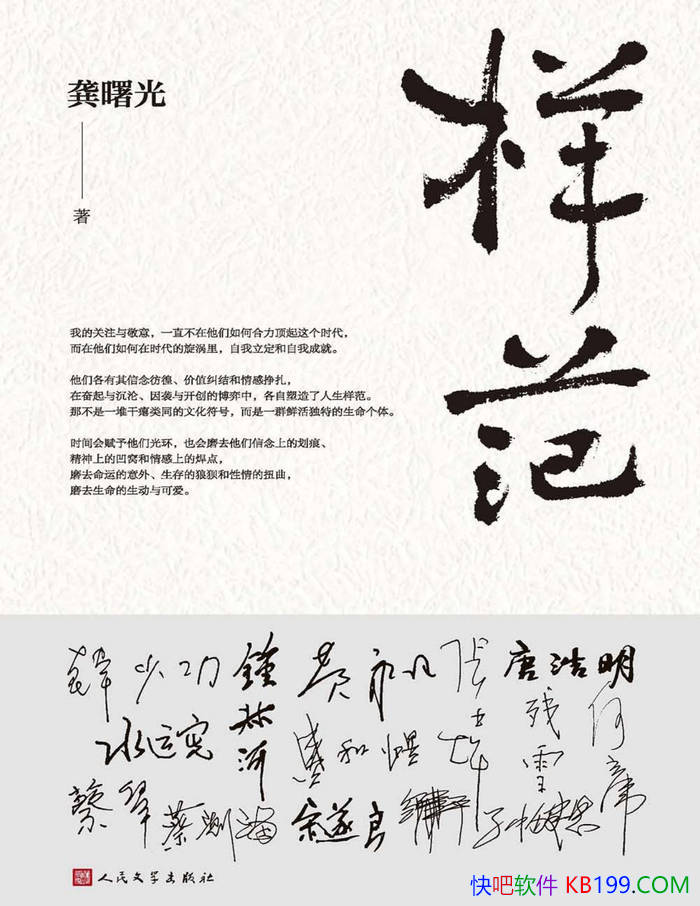 样范
龚曙光
著
我的关注与敬意，一直不在他们如何合力顶起这个时代，
而在他们如何在时代的旋涡里，自我立定和自我成就。
他们各有其信念彷徨、价值纠结和情感挣扎，
在奋起与沉沦、因袭与开创的博弈中，各自塑造了人生样范。
那不是一堆干瘪类同的文化符号，而是一群鲜活独特的生命个体。
时间会赋予他们光环，也会磨去他们信念上的划痕、
精神上的凹窝和情感上的焊点，
磨去命运的意外、生存的狼狈和性情的扭曲，
磨去生命的生动与可爱。
韩少功
钟叔河
唐浩明
残雪
何立伟
水运宪
盛和煜
蔡皋
蔡测海
人民文学出版社
快吧软件 KB199.COM